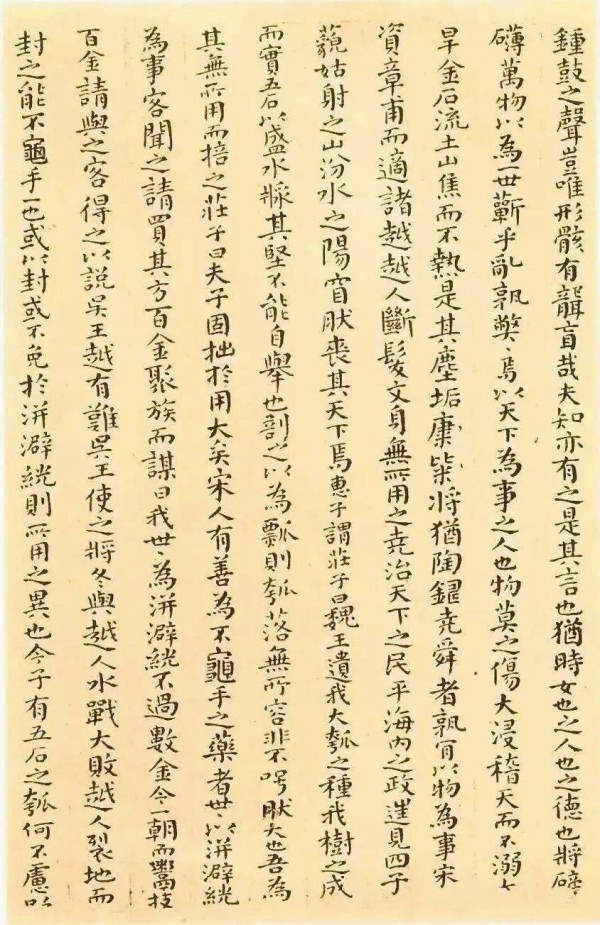 鍾鼓之聲豈唯形骸有聾盲哉夫知亦有之是其言也猶時女也之人也之德也將磅
礴萬物以為一世蘄乎亂孰弊〻焉以天下為事之人也物莫之傷大浸稽天而不溺大
旱金石流土山焦而不熱是其塵垢將猶陶鑄堯舜者孰肯以物為事宋
資章甫而適諸越越人斷髮文身無所用之堯治天下之民平海內之政見四子
藐姑射之山汾水之陽窅然喪其天下焉惠子謂莊子曰魏王遺我大瓠之種我樹之成
而實五石以盛水漿其堅不能自舉也剖之以為瓢則瓠落無所容非不呺然大也吾為
其無所用而掊之莊子曰夫子固拙於用大矣宋人有善為不龜手之藥者世〻以洴澼絖
為事客聞之請買其方百金聚族而謀曰我世〻為洴澼絖不過數金今一朝而鬻技
百金請與之客得之以說吳王越有難吳王使之將冬與越人水戰大敗越人裂地而
封之能不龜手一也或以封或不免於洴澼絖則所用之異也今子有五石之瓠何不慮以